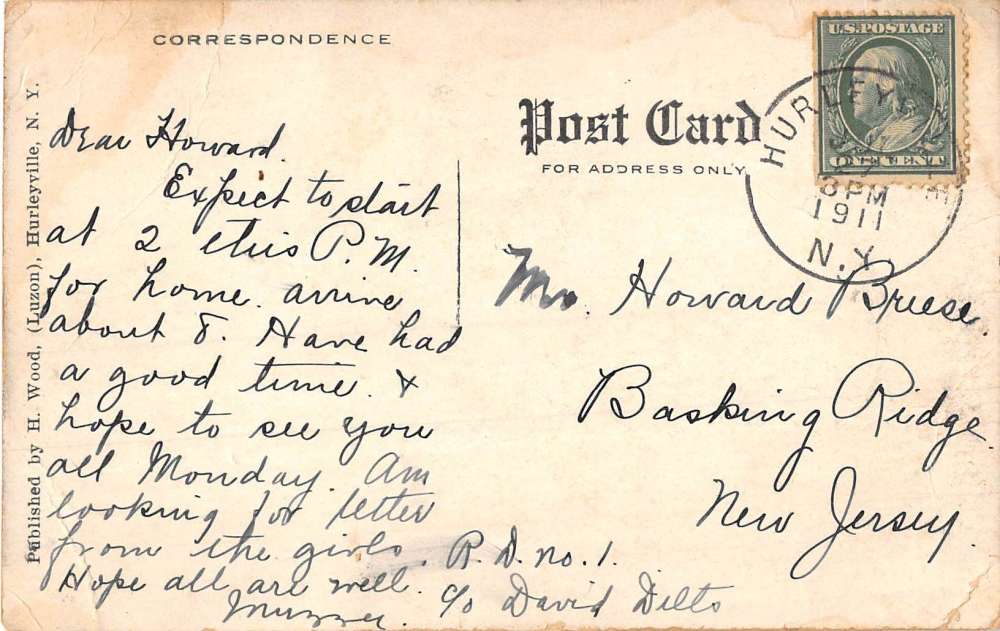 CORRESPONDENCE
Dear Howard.
Expect to start
at 2 this P.M.
for home. arrive
about 8. Have had
a good time &
hope to see you
all Monday. Am
looking for letter
from the girls.
Hope all are well.
Muzzer.
Published by H. Wood, (Luzon), Hurleyville, N. Y.
Post Card
FOR ADDRESS ONLY
U.S. POSTAGE
ONE CENT
HURLEYVILLE
8 PM
1911
N.Y.
Mr. Howard Breese.
Basking Ridge.
New Jersey.
R. D. no. 1.
c/o David Dilts